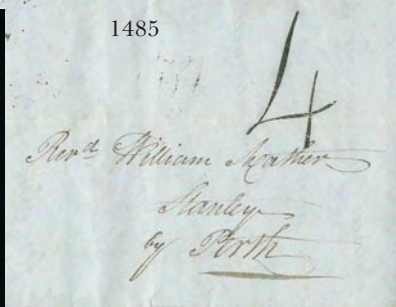 1485
4
Revd William Mather
Stanley
by Perth